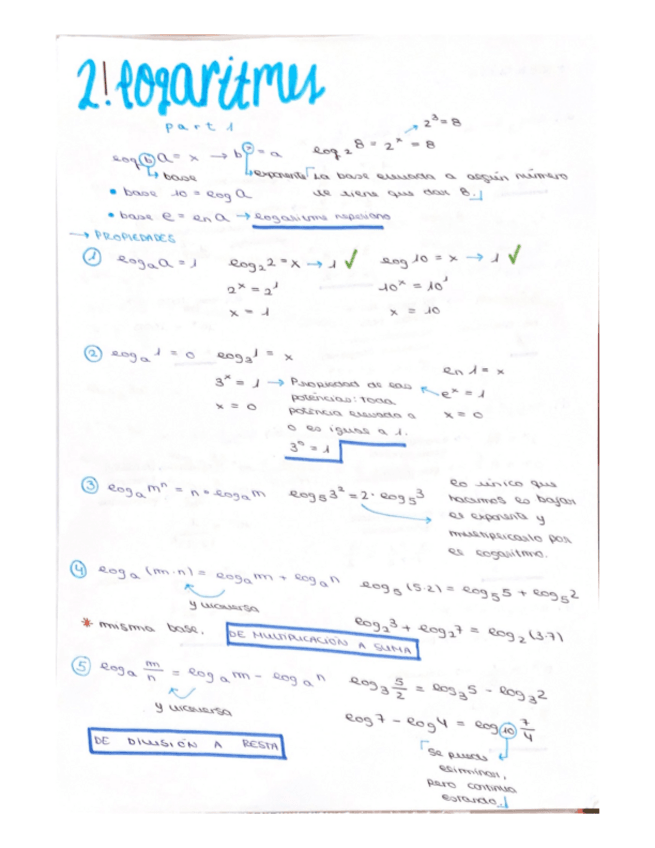 2! logaritmos
part 1
log_b a = x → b^x = a
base
exponente
log_2 8 = 2^x = 8
2^3 = 8
"La base elevada a algún número
te tiene que dar 8."
• base 10 = log a
• base e = ln a → logaritmo neperiano
→ PROPIEDADES
① log_a a = 1
log_2 2 = x → 1 ✓
2^x = 2^1
x = 1
log 10 = x → 1 ✓
10^x = 10^1
x = 10
② log_a 1 = 0
log_3 1 = x
3^x = 1 → Propiedad de las
potencias: toda
potencia elevado a
0 es igual a 1.
3^0 = 1
x = 0
ln 1 = x
e^x = 1
x = 0
③ log_a m^n = n · log_a m
log_5 3^2 = 2 · log_5 3
lo único que
hacemos es bajar
el exponente y
multiplicarlo por
el logaritmo.
④ log_a (m·n) = log_a m + log_a n
y viceversa
log_5 (5·2) = log_5 5 + log_5 2
log_2 3 + log_2 7 = log_2 (3·7)
* misma base.
DE MULTIPLICACIÓN A SUMA
⑤ log_a m/n = log_a m - log_a n
y viceversa
log_3 5/2 = log_3 5 - log_3 2
log 7 - log 4 = log_10 7/4
DE DIVISIÓN A RESTA
"Se puede
eliminar,
pero continua
estando."